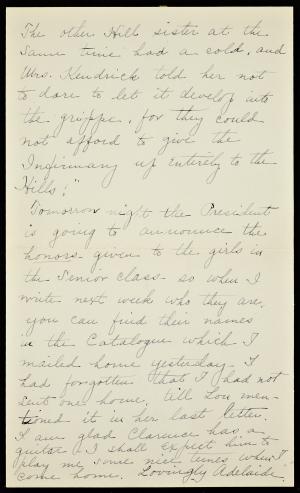 The other Hill sister at the
same time had a cold, and
Mrs. Kendrick told her not
to dare to let it develop into
the grippe, for they could
not afford to give the
Infirmary up entirely to the
Hills!"
Tomorrow night the President
is going to announce the
honors given to the girls in
the Senior class- so when I
write next week who they are,
you can find their names
in the Catalogue which I
mailed home yesterday. I
had forgotten that I had not
sent one home, till Lou men-
tioned it in her last letter.
I am glad Clarence has a
guitar. I shall expect him to
play me some nice tunes when I
come home. Lovingly Adelaide.